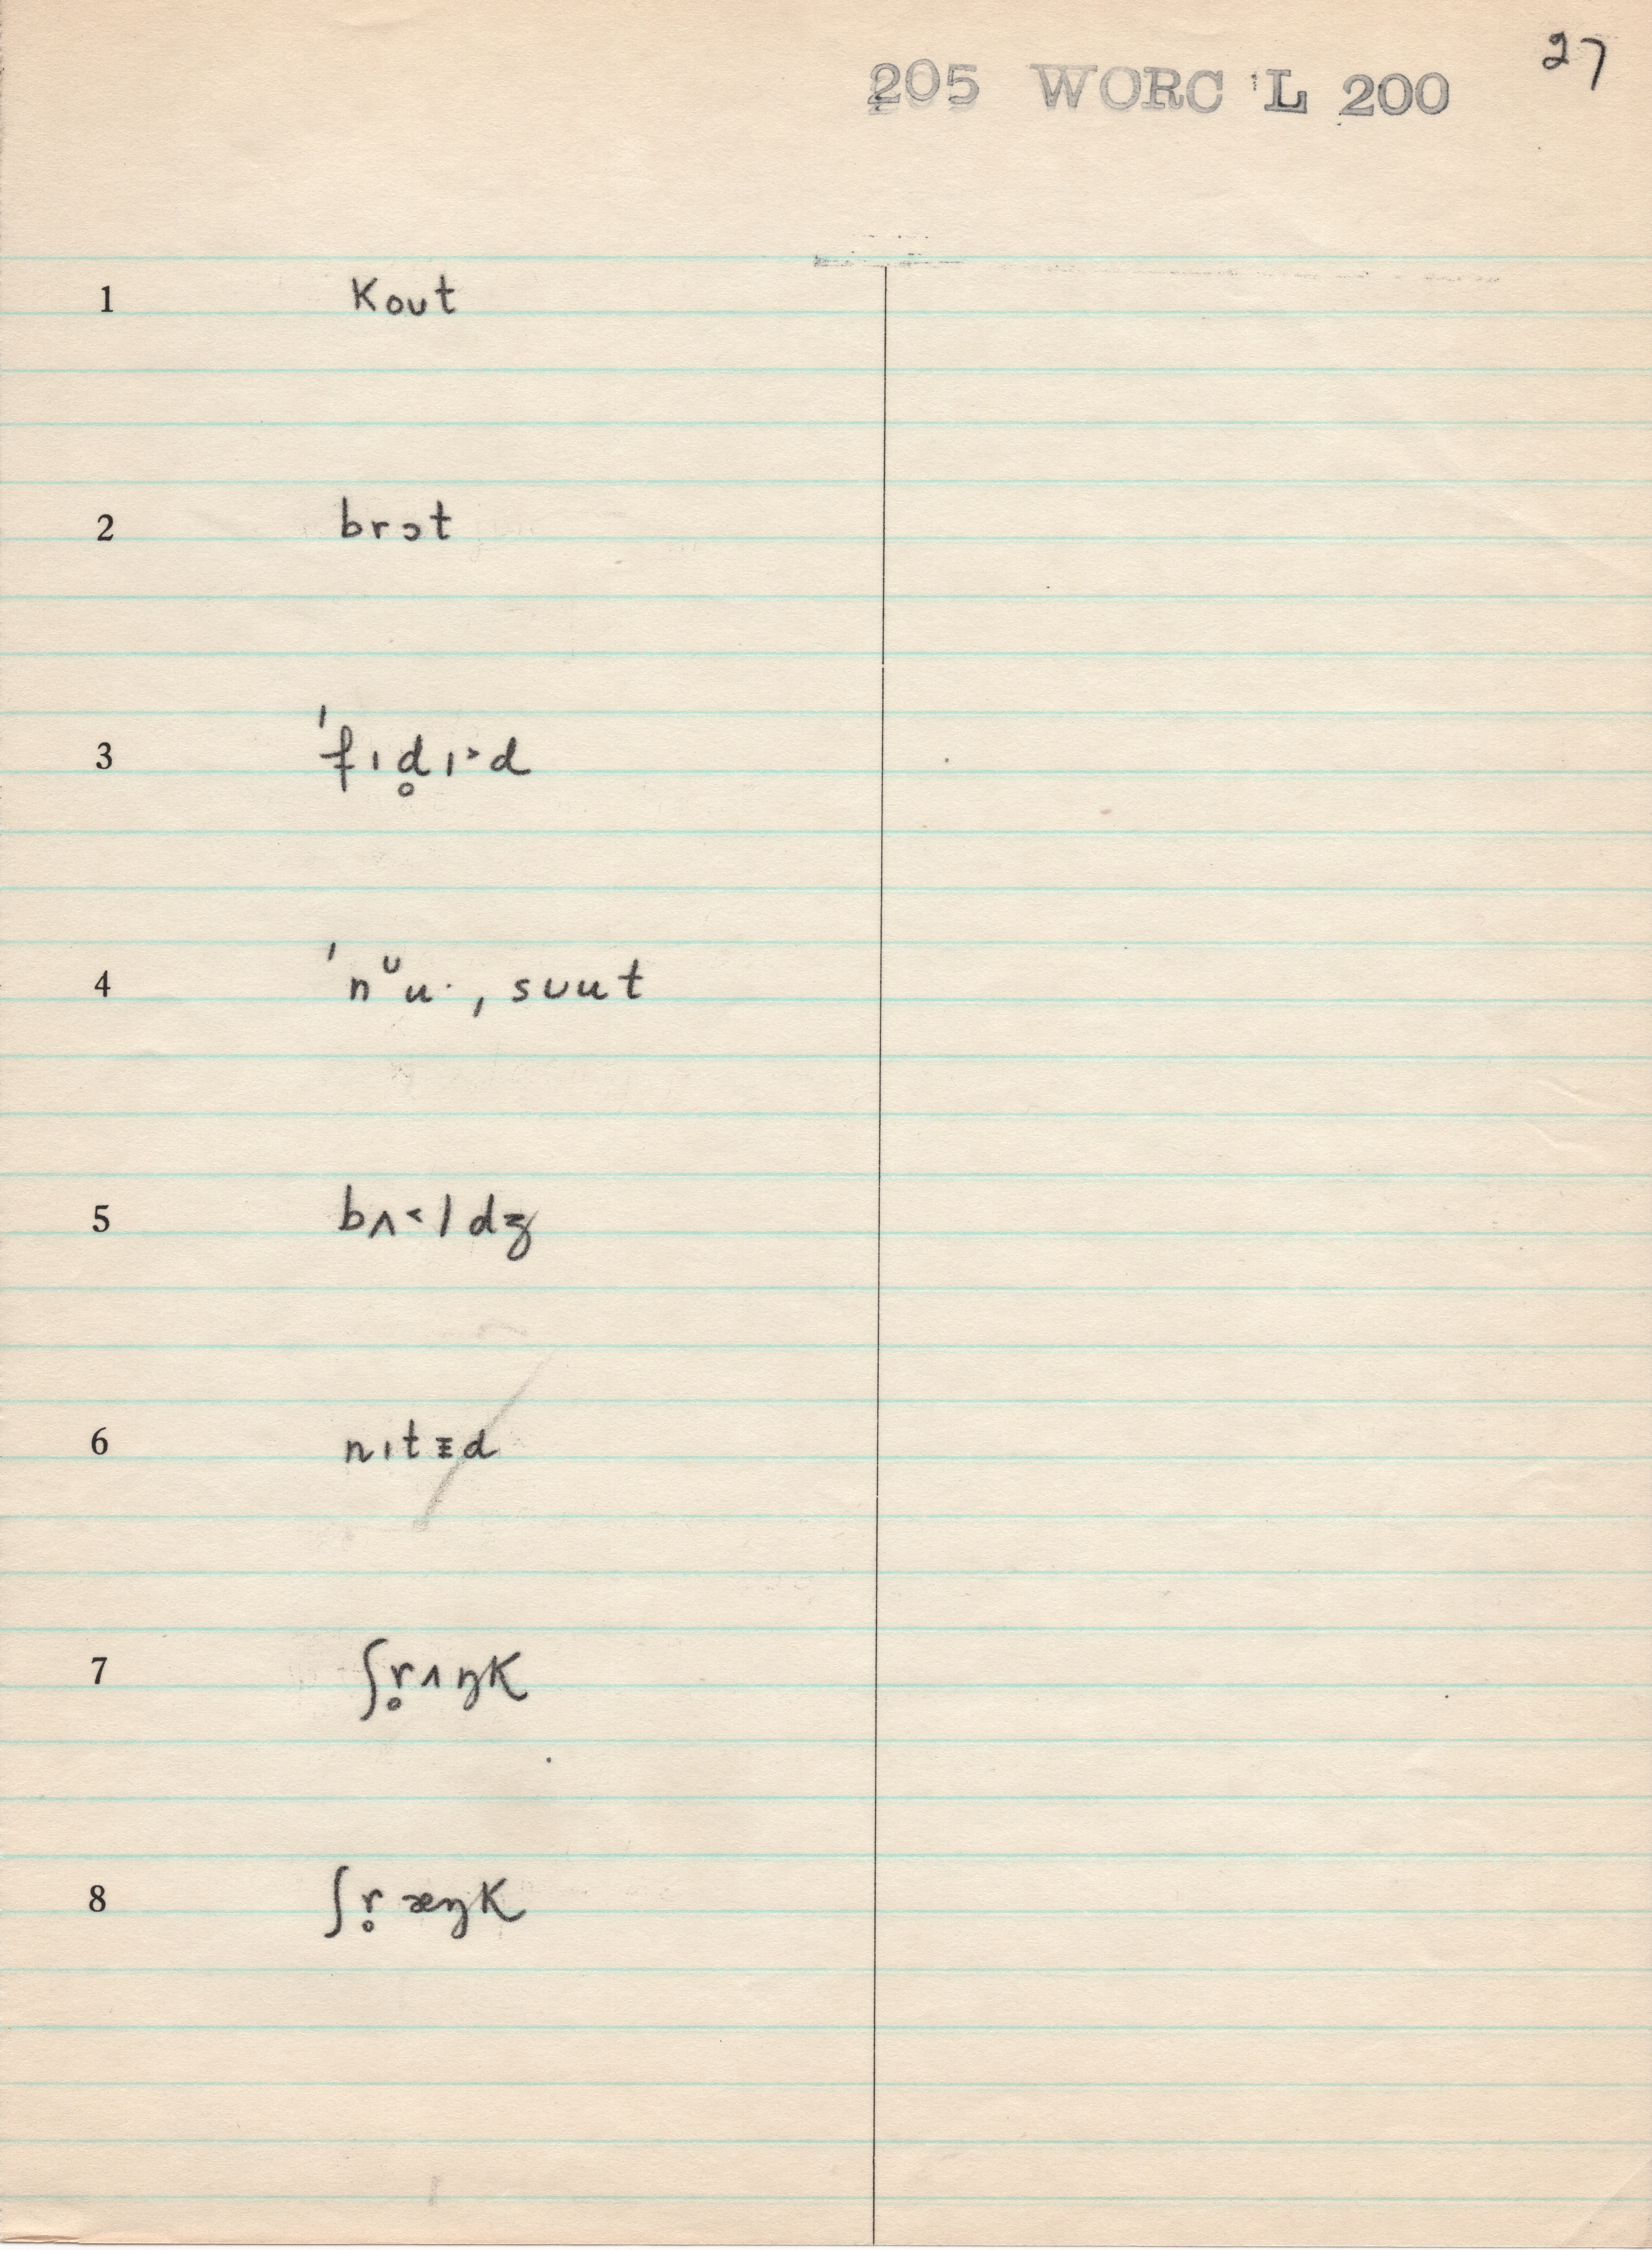 27
205 WORC L 200
1 kout
2 brɔt
3 ˈfɪd̥ɪ˃d
4 ˈnᴜu·, sᴜut
5 bʌ˂ldʒ
6 nɪtᵻd
7 ʃr̥ʌŋk
8 ʃr̥æŋk